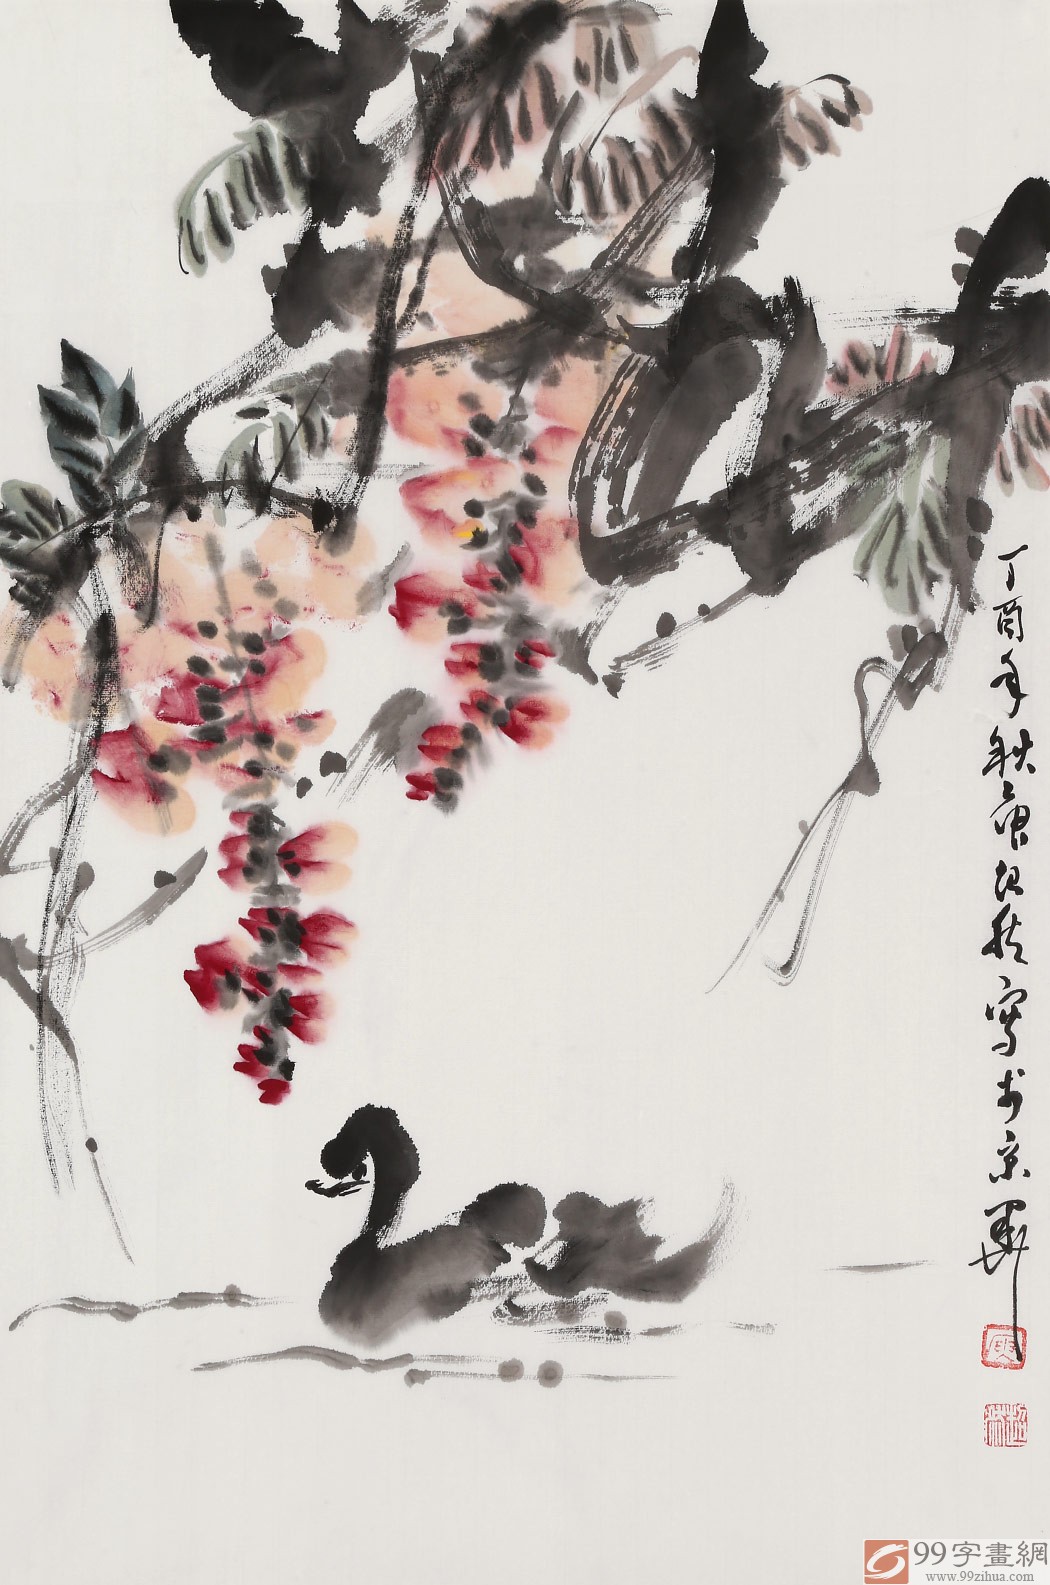 丁酉年秋庾超然寫於京華
庾
超然
99字畫網
www.99zihua.com